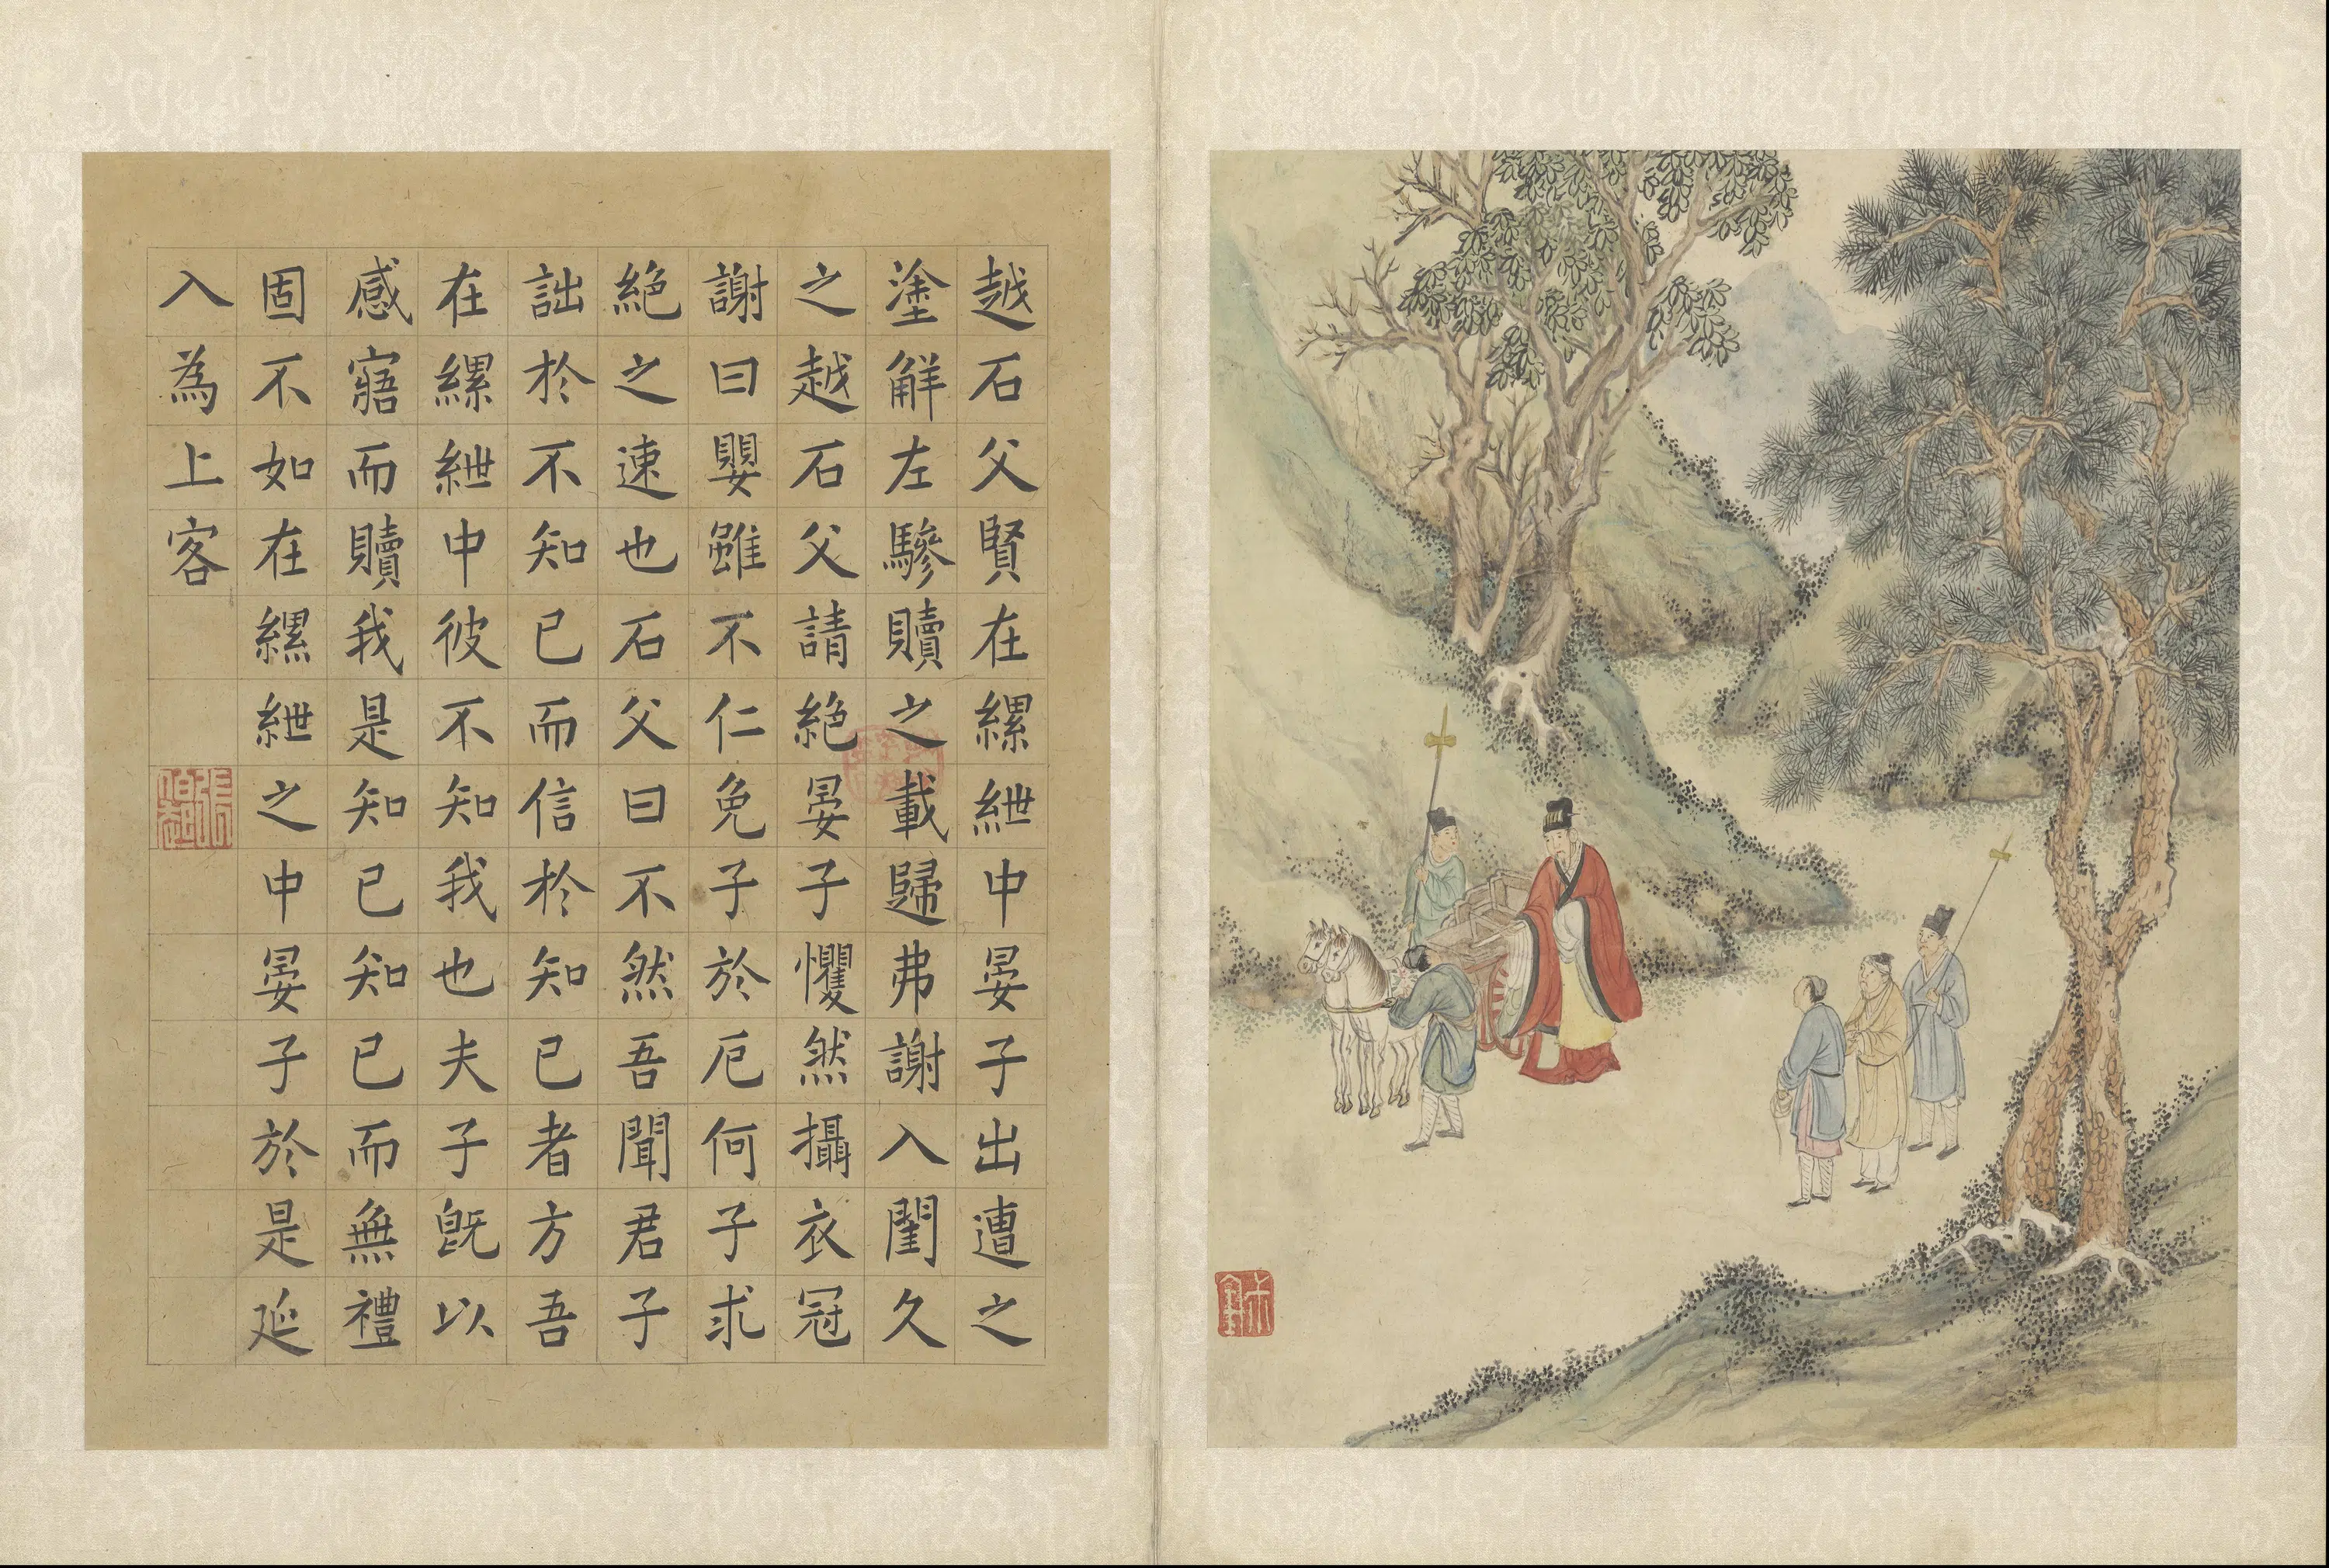 越石父賢在縲紲中晏子出遭之
塗解左驂贖之載歸弗謝入閨久
之越石父請絕晏子懼然攝衣冠
謝曰嬰雖不仁免子於厄何子求
絕之速也石父曰不然吾聞君子
詘於不知已而信於知已者方吾
在縲紲中彼不知我也夫子旣以
感寤而贖我是知已知已而無禮
固不如在縲紲之中晏子於是延
入為上客